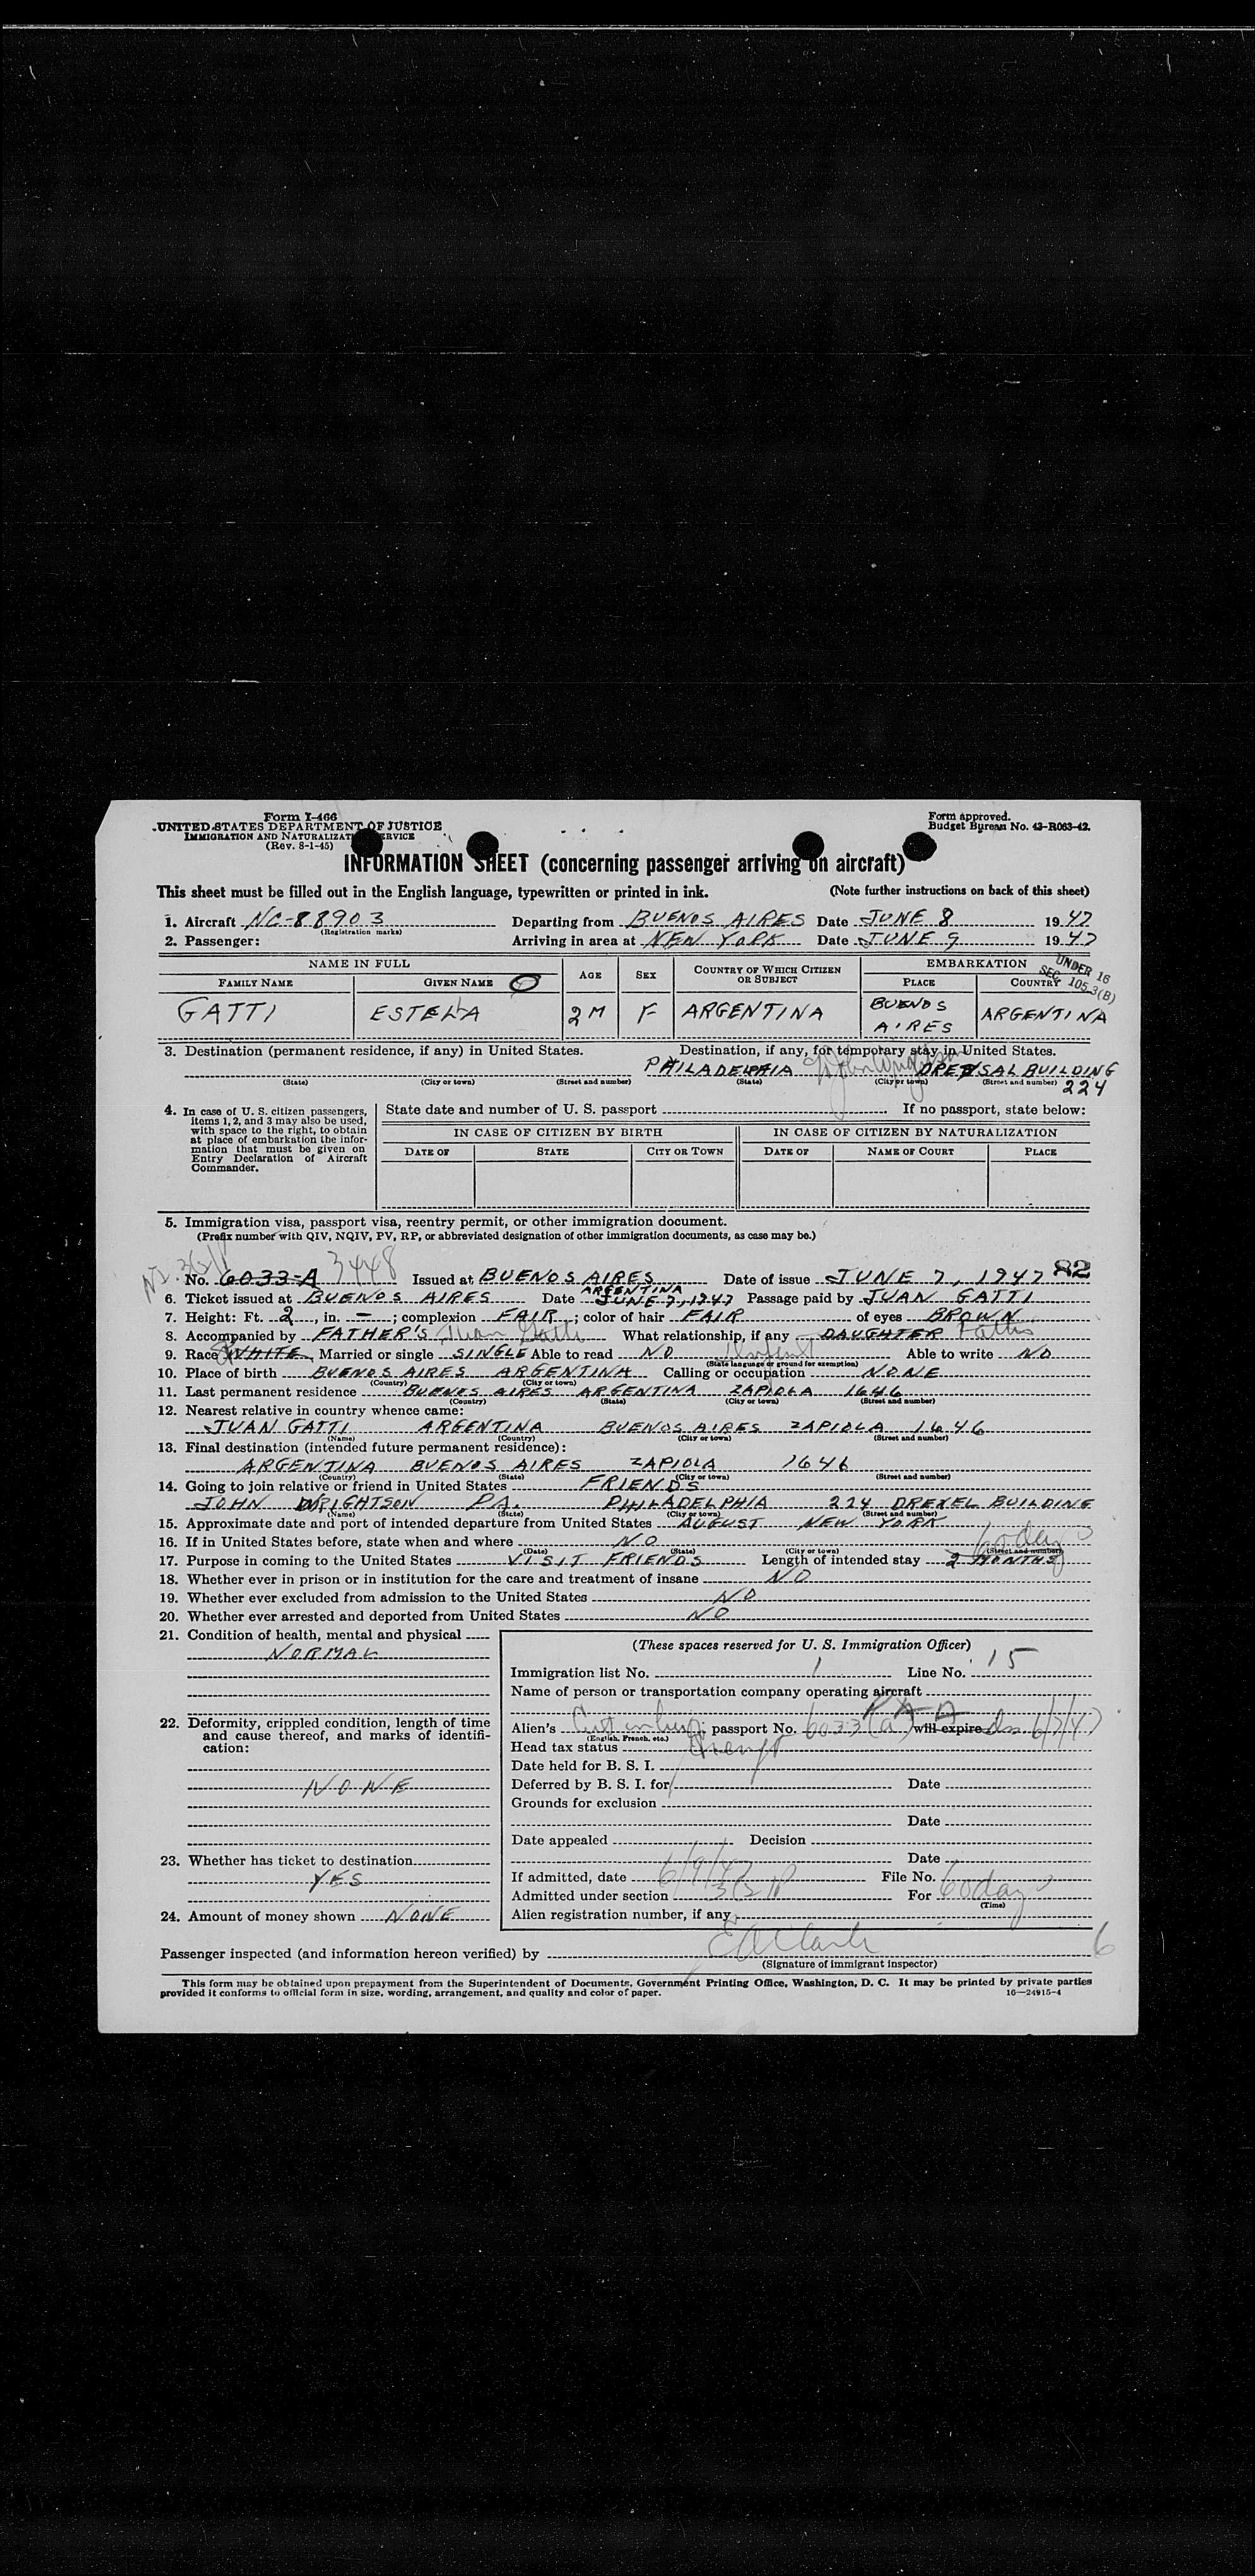 Form I-466
UNITED STATES DEPARTMENT OF JUSTICE
IMMIGRATION AND NATURALIZATION SERVICE
(Rev. 8-1-45)
Form approved.
Budget Bureau No. 43-R063-42.
INFORMATION SHEET (concerning passenger arriving on aircraft)
This sheet must be filled out in the English language, typewritten or printed in ink. (Note further instructions on back of this sheet)
1. Aircraft NC-88903 Departing from BUENOS AIRES Date JUNE 8 1947
(Registration marks)
2. Passenger: Arriving in area at NEW YORK Date JUNE 9 1947
NAME IN FULL AGE SEX COUNTRY OF WHICH CITIZEN OR SUBJECT EMBARKATION
UNDER 16 SEC. 105.3(B)
FAMILY NAME GIVEN NAME PLACE COUNTRY
GATTI ESTELA 2M F ARGENTINA BUENOS AIRES ARGENTINA
3. Destination (permanent residence, if any) in United States. Destination, if any, for temporary stay in United States.
PHILADELPHIA DREXSAL BUILDING
(State) (City or town) (Street and number) (State) (City or town) (Street and number) 224
4. In case of U. S. citizen passengers, items 1, 2, and 3 may also be used, with space to the right, to obtain at place of embarkation the information that must be given on Entry Declaration of Aircraft Commander.
State date and number of U. S. passport If no passport, state below:
IN CASE OF CITIZEN BY BIRTH IN CASE OF CITIZEN BY NATURALIZATION
DATE OF STATE CITY OR TOWN DATE OF NAME OF COURT PLACE
5. Immigration visa, passport visa, reentry permit, or other immigration document.
(Prefix number with QIV, NQIV, PV, RP, or abbreviated designation of other immigration documents, as case may be.)
No. 6033-A 3448 Issued at BUENOS AIRES ARGENTINA Date of issue JUNE 7, 1947 82
6. Ticket issued at BUENOS AIRES Date JUNE 7, 1947 Passage paid by JUAN GATTI
7. Height: Ft. 2, in. –; complexion FAIR; color of hair FAIR of eyes BROWN
8. Accompanied by FATHER'S Juan Gatti What relationship, if any DAUGHTER Father
9. Race WHITE Married or single SINGLE Able to read NO Infant Able to write NO
(State language or ground for exemption)
10. Place of birth BUENOS AIRES ARGENTINA Calling or occupation NONE
(Country) (City or town)
11. Last permanent residence BUENOS AIRES ARGENTINA ZAPIOLA 1646
(Country) (State) (City or town) (Street and number)
12. Nearest relative in country whence came:
JUAN GATTI ARGENTINA BUENOS AIRES ZAPIOLA 1646
(Name) (Country) (City or town) (Street and number)
13. Final destination (intended future permanent residence):
ARGENTINA BUENOS AIRES ZAPIOLA 1646
(Country) (State) (City or town) (Street and number)
14. Going to join relative or friend in United States FRIENDS
JOHN WRIGHTSON PA. PHILADELPHIA 224 DREXEL BUILDING
(Name) (State) (City or town) (Street and number)
15. Approximate date and port of intended departure from United States AUGUST NEW YORK
16. If in United States before, state when and where NO
(Date) (State) (City or town) (Street and number)
60 days
17. Purpose in coming to the United States VISIT FRIENDS Length of intended stay 2 MONTHS
18. Whether ever in prison or in institution for the care and treatment of insane NO
19. Whether ever excluded from admission to the United States NO
20. Whether ever arrested and deported from United States NO
21. Condition of health, mental and physical
NORMAL
22. Deformity, crippled condition, length of time and cause thereof, and marks of identification:
NONE
23. Whether has ticket to destination
YES
24. Amount of money shown NONE
(These spaces reserved for U. S. Immigration Officer)
Immigration list No. 1 Line No. 15
Name of person or transportation company operating aircraft
PAA
Alien's passport No. 6033(a) will expire 6/7/47
(English, French, etc.)
Head tax status Exempt
Date held for B. S. I.
Deferred by B. S. I. for Date
Grounds for exclusion
Date
Date appealed Decision
Date
If admitted, date 6/9/47 File No.
Admitted under section 3(2) For 60 days
(Time)
Alien registration number, if any
Passenger inspected (and information hereon verified) by 6
(Signature of immigrant inspector)
This form may be obtained upon prepayment from the Superintendent of Documents, Government Printing Office, Washington, D. C. It may be printed by private parties
provided it conforms to official form in size, wording, arrangement, and quality and color of paper. 16—24915-4